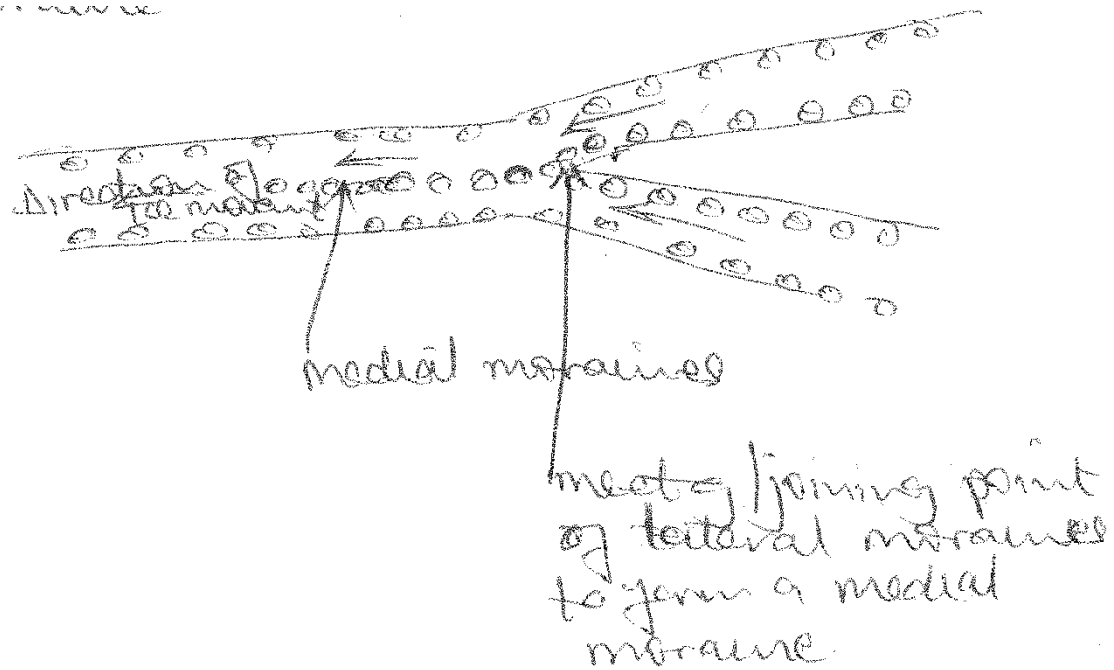 Direction of
Ice movant
medial moraines
meetg/joining point
of lateral moraines
to form a medial
moraine